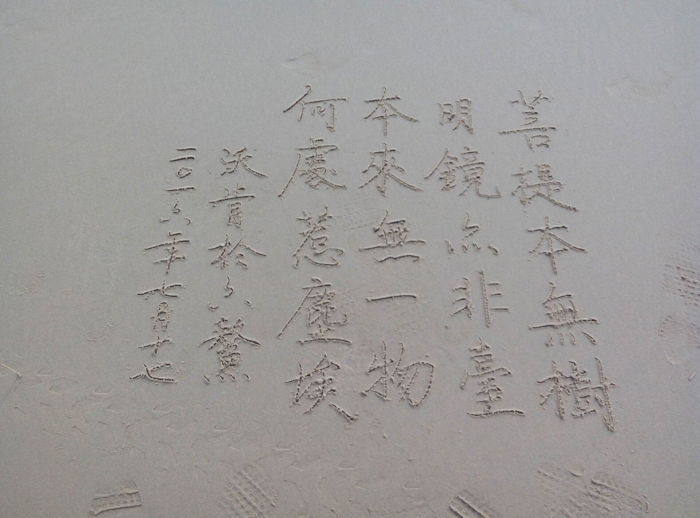 菩提本無樹
明鏡亦非臺
本來無一物
何處惹塵埃
沃肯於六鰲
二〇一六年七月十七